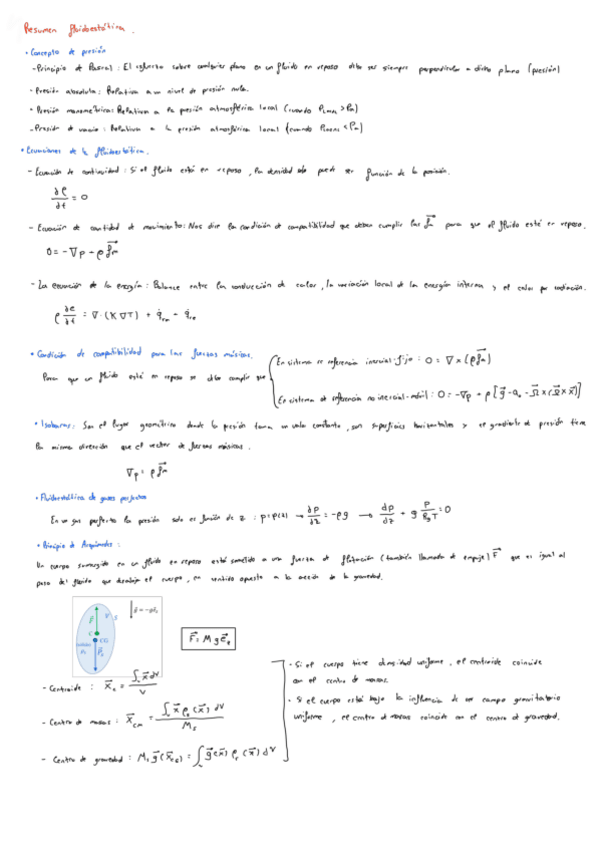 Resumen fluidoestática.
• Concepto de presión
- Principio de Pascal: El esfuerzo sobre cualquier plano en un fluido en reposo debe ser siempre perpendicular a dicho plano (presión)
- Presión absoluta: Relativa a un nivel de presión nula.
- Presión manométrica: Relativa a la presión atmosférica local (cuando Pman > Pa)
- Presión de vacío: Relativa a la presión atmosférica local (cuando < Pa)
• Ecuaciones de la fluidoestática.
- Ecuación de continuidad: Si el fluido está en reposo, la densidad solo puede ser función de la posición.
∂ρ/∂t = 0
- Ecuación de cantidad de movimiento: Nos dice la condición de compatibilidad que deben cumplir las f⃗m para que el fluido esté en reposo.
0 = -∇p + ρf⃗m
- La ecuación de la energía: Balance entre la conducción de calor, la variación local de la energía interna y el calor por radiación.
ρ ∂e/∂t = ∇·(K∇T) + q̇ + q̇
• Condición de compatibilidad para las fuerzas másicas.
Para que un fluido esté en reposo se debe cumplir que
En sistema de referencia inercial-fijo: 0 = ∇×(ρf⃗m)
En sistema de referencia no inercial-móvil: 0 = -∇p + ρ[g⃗ - a₀ - Ω⃗×(Ω⃗×x⃗)]
• Isobaras: Son el lugar geométrico donde la presión toma un valor constante, son superficies horizontales y el gradiente de presión tiene
la misma dirección que el vector de fuerzas másicas.
∇p = ρf⃗m
• Fluidoestática de gases perfectos
En un gas perfecto la presión solo es función de z: p = p(z) → ∂p/∂z = -ρg → dp/dz + g p/(RgT) = 0
• Principio de Arquímedes:
Un cuerpo sumergido en un fluido en reposo está sometido a una fuerza de flotación (también llamada de empuje) F⃗ que es igual al
peso del fluido que desaloja el cuerpo, en sentido opuesto a la acción de la gravedad.
F⃗ = M g e⃗z
- Centroide: x⃗c = ∫ x⃗ dV / V
- Centro de masas: x⃗cm = ∫ x⃗ ρs(x⃗) dV / Ms
- Centro de gravedad: Ms g⃗(x⃗cg) = ∫ g⃗(x⃗) ρs(x⃗) dV
• Si el cuerpo tiene densidad uniforme, el centroide coincide
con el centro de masas.
• Si el cuerpo está bajo la influencia de un campo gravitatorio
uniforme, el centro de masas coincide con el centro de gravedad.